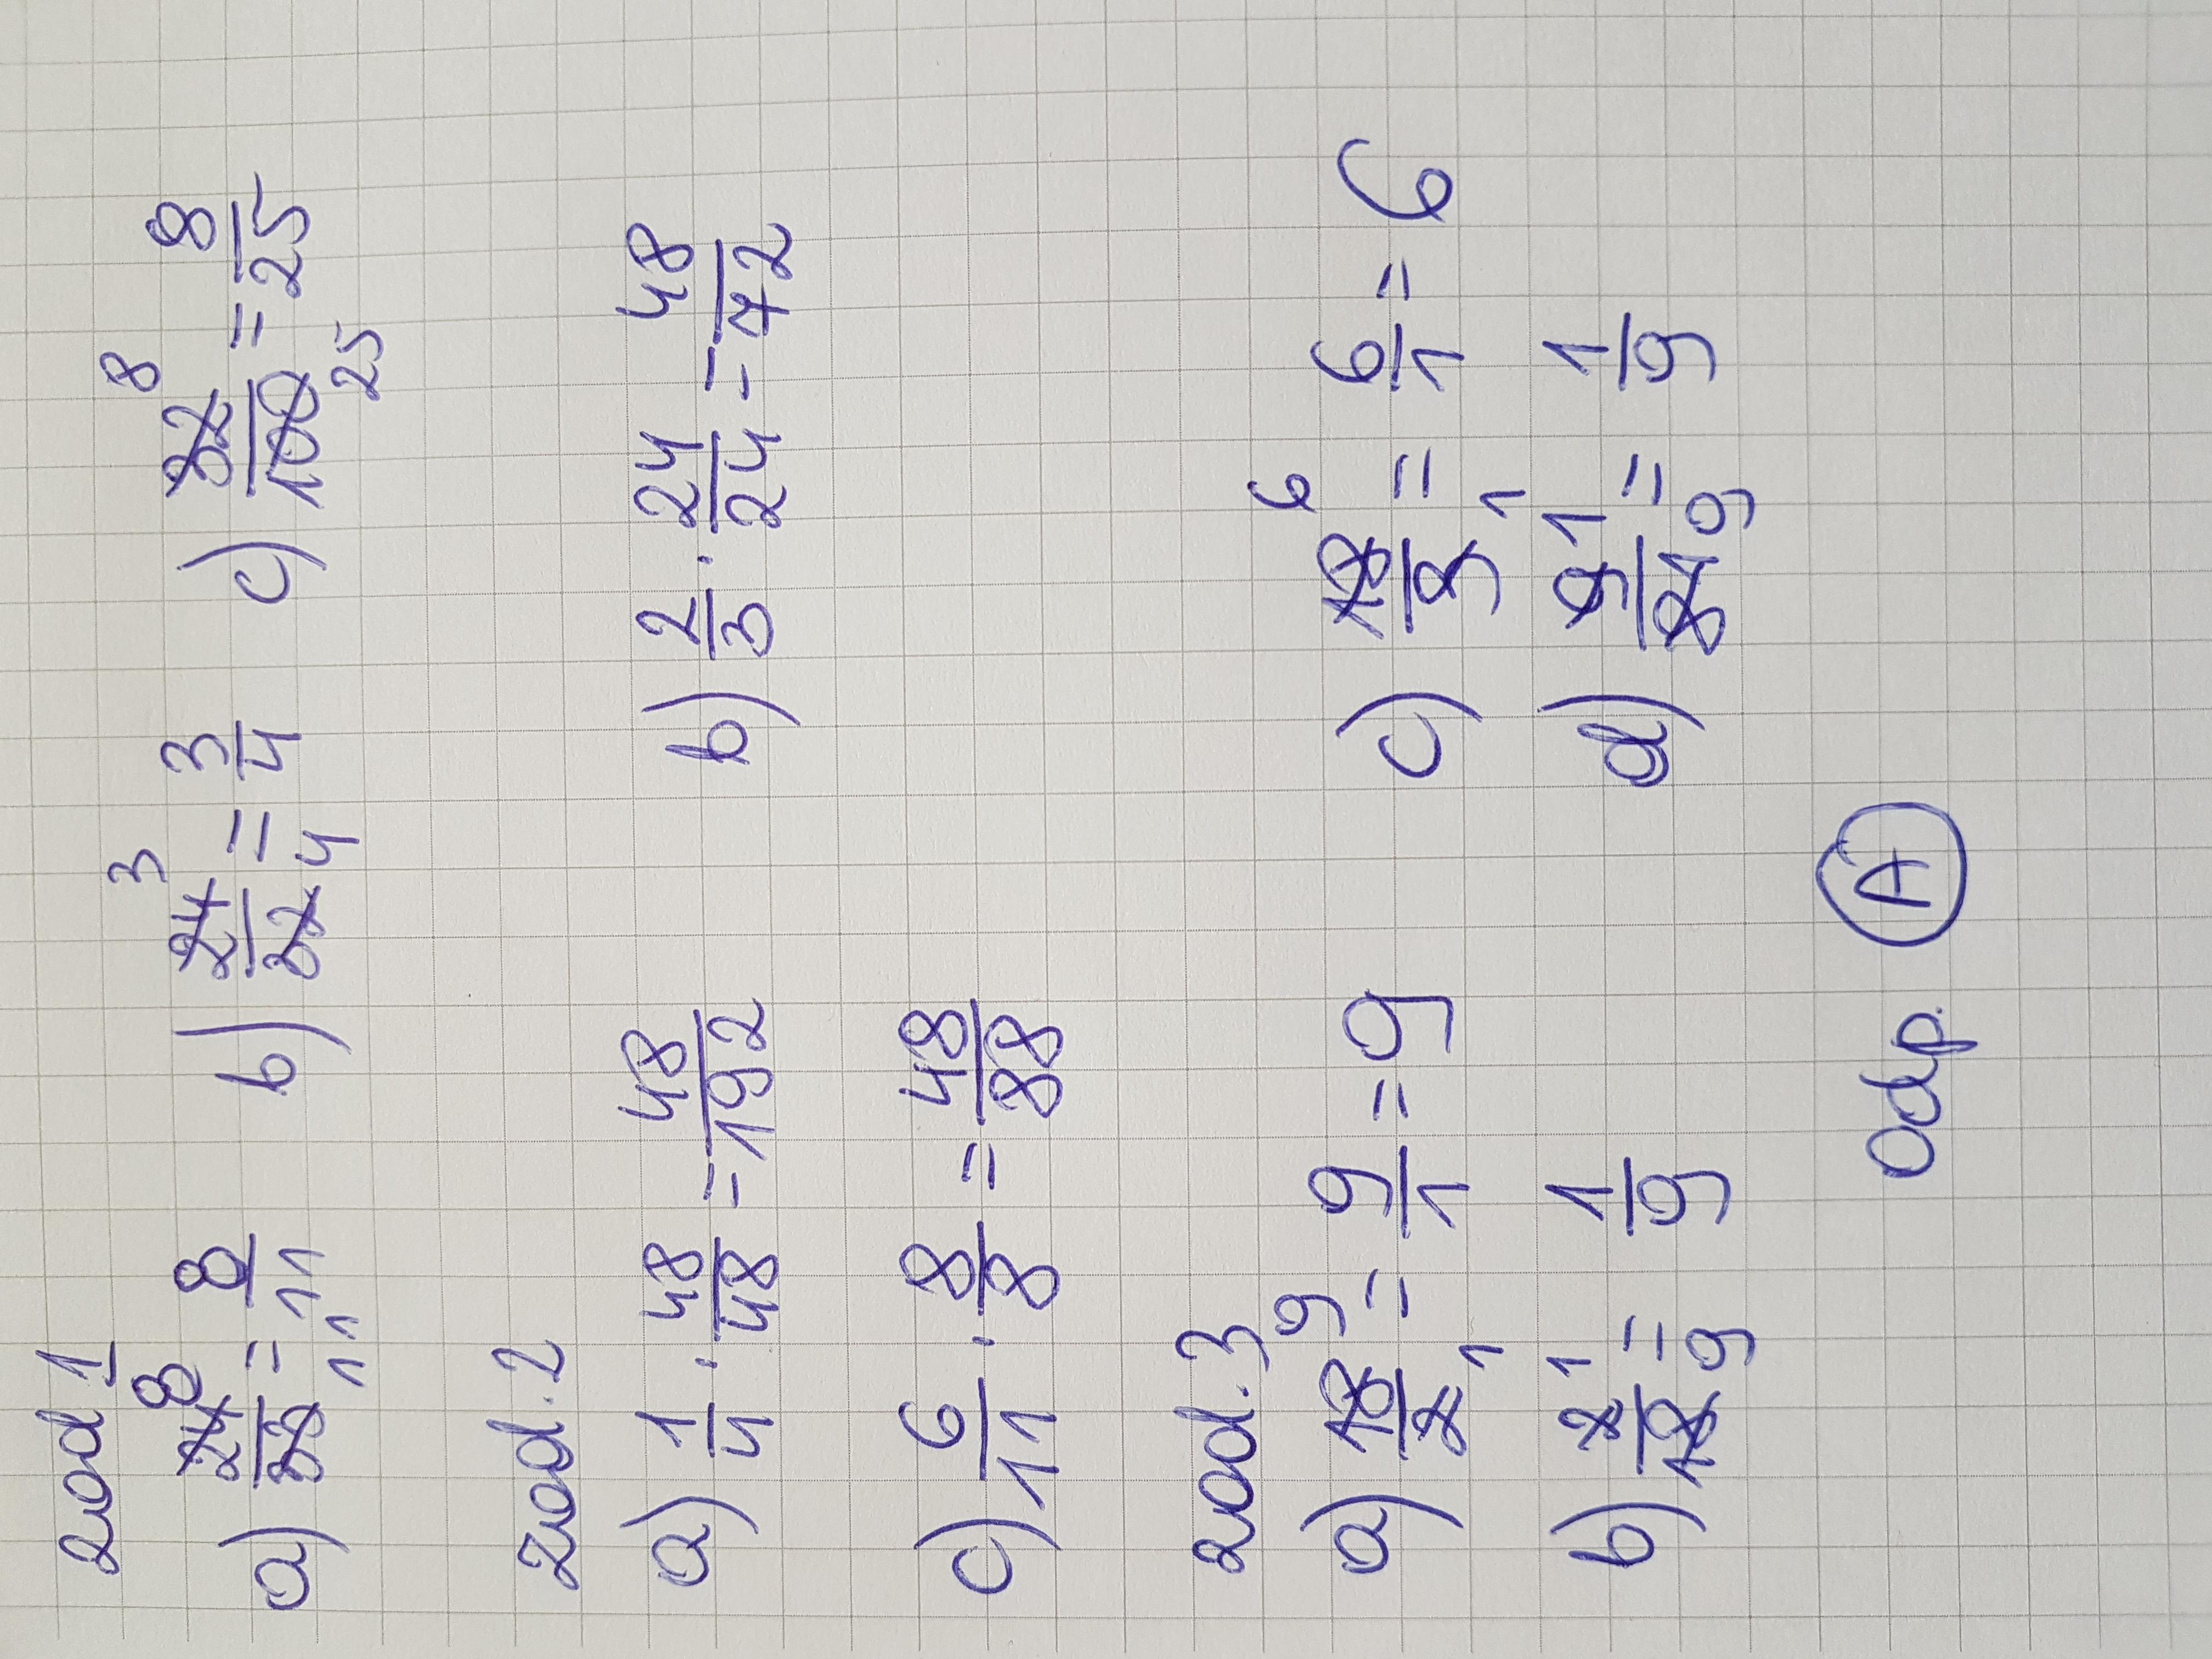 zad 1
a) 24/33 8/11 = 8/11 b) 24/32 3/4 = 3/4 c) 32/100 8/25 = 8/25
zad.2
a) 1/4 · 48/48 = 48/192 b) 2/3 · 24/24 = 48/72
c) 6/11 · 8/8 = 48/88
zad.3
a) 18/2 9/1 = 9/1 = 9 c) 18/3 6/1 = 6/1 = 6
b) 2/18 1/9 = 1/9 d) 9/81 1/9 = 1/9
Odp. A